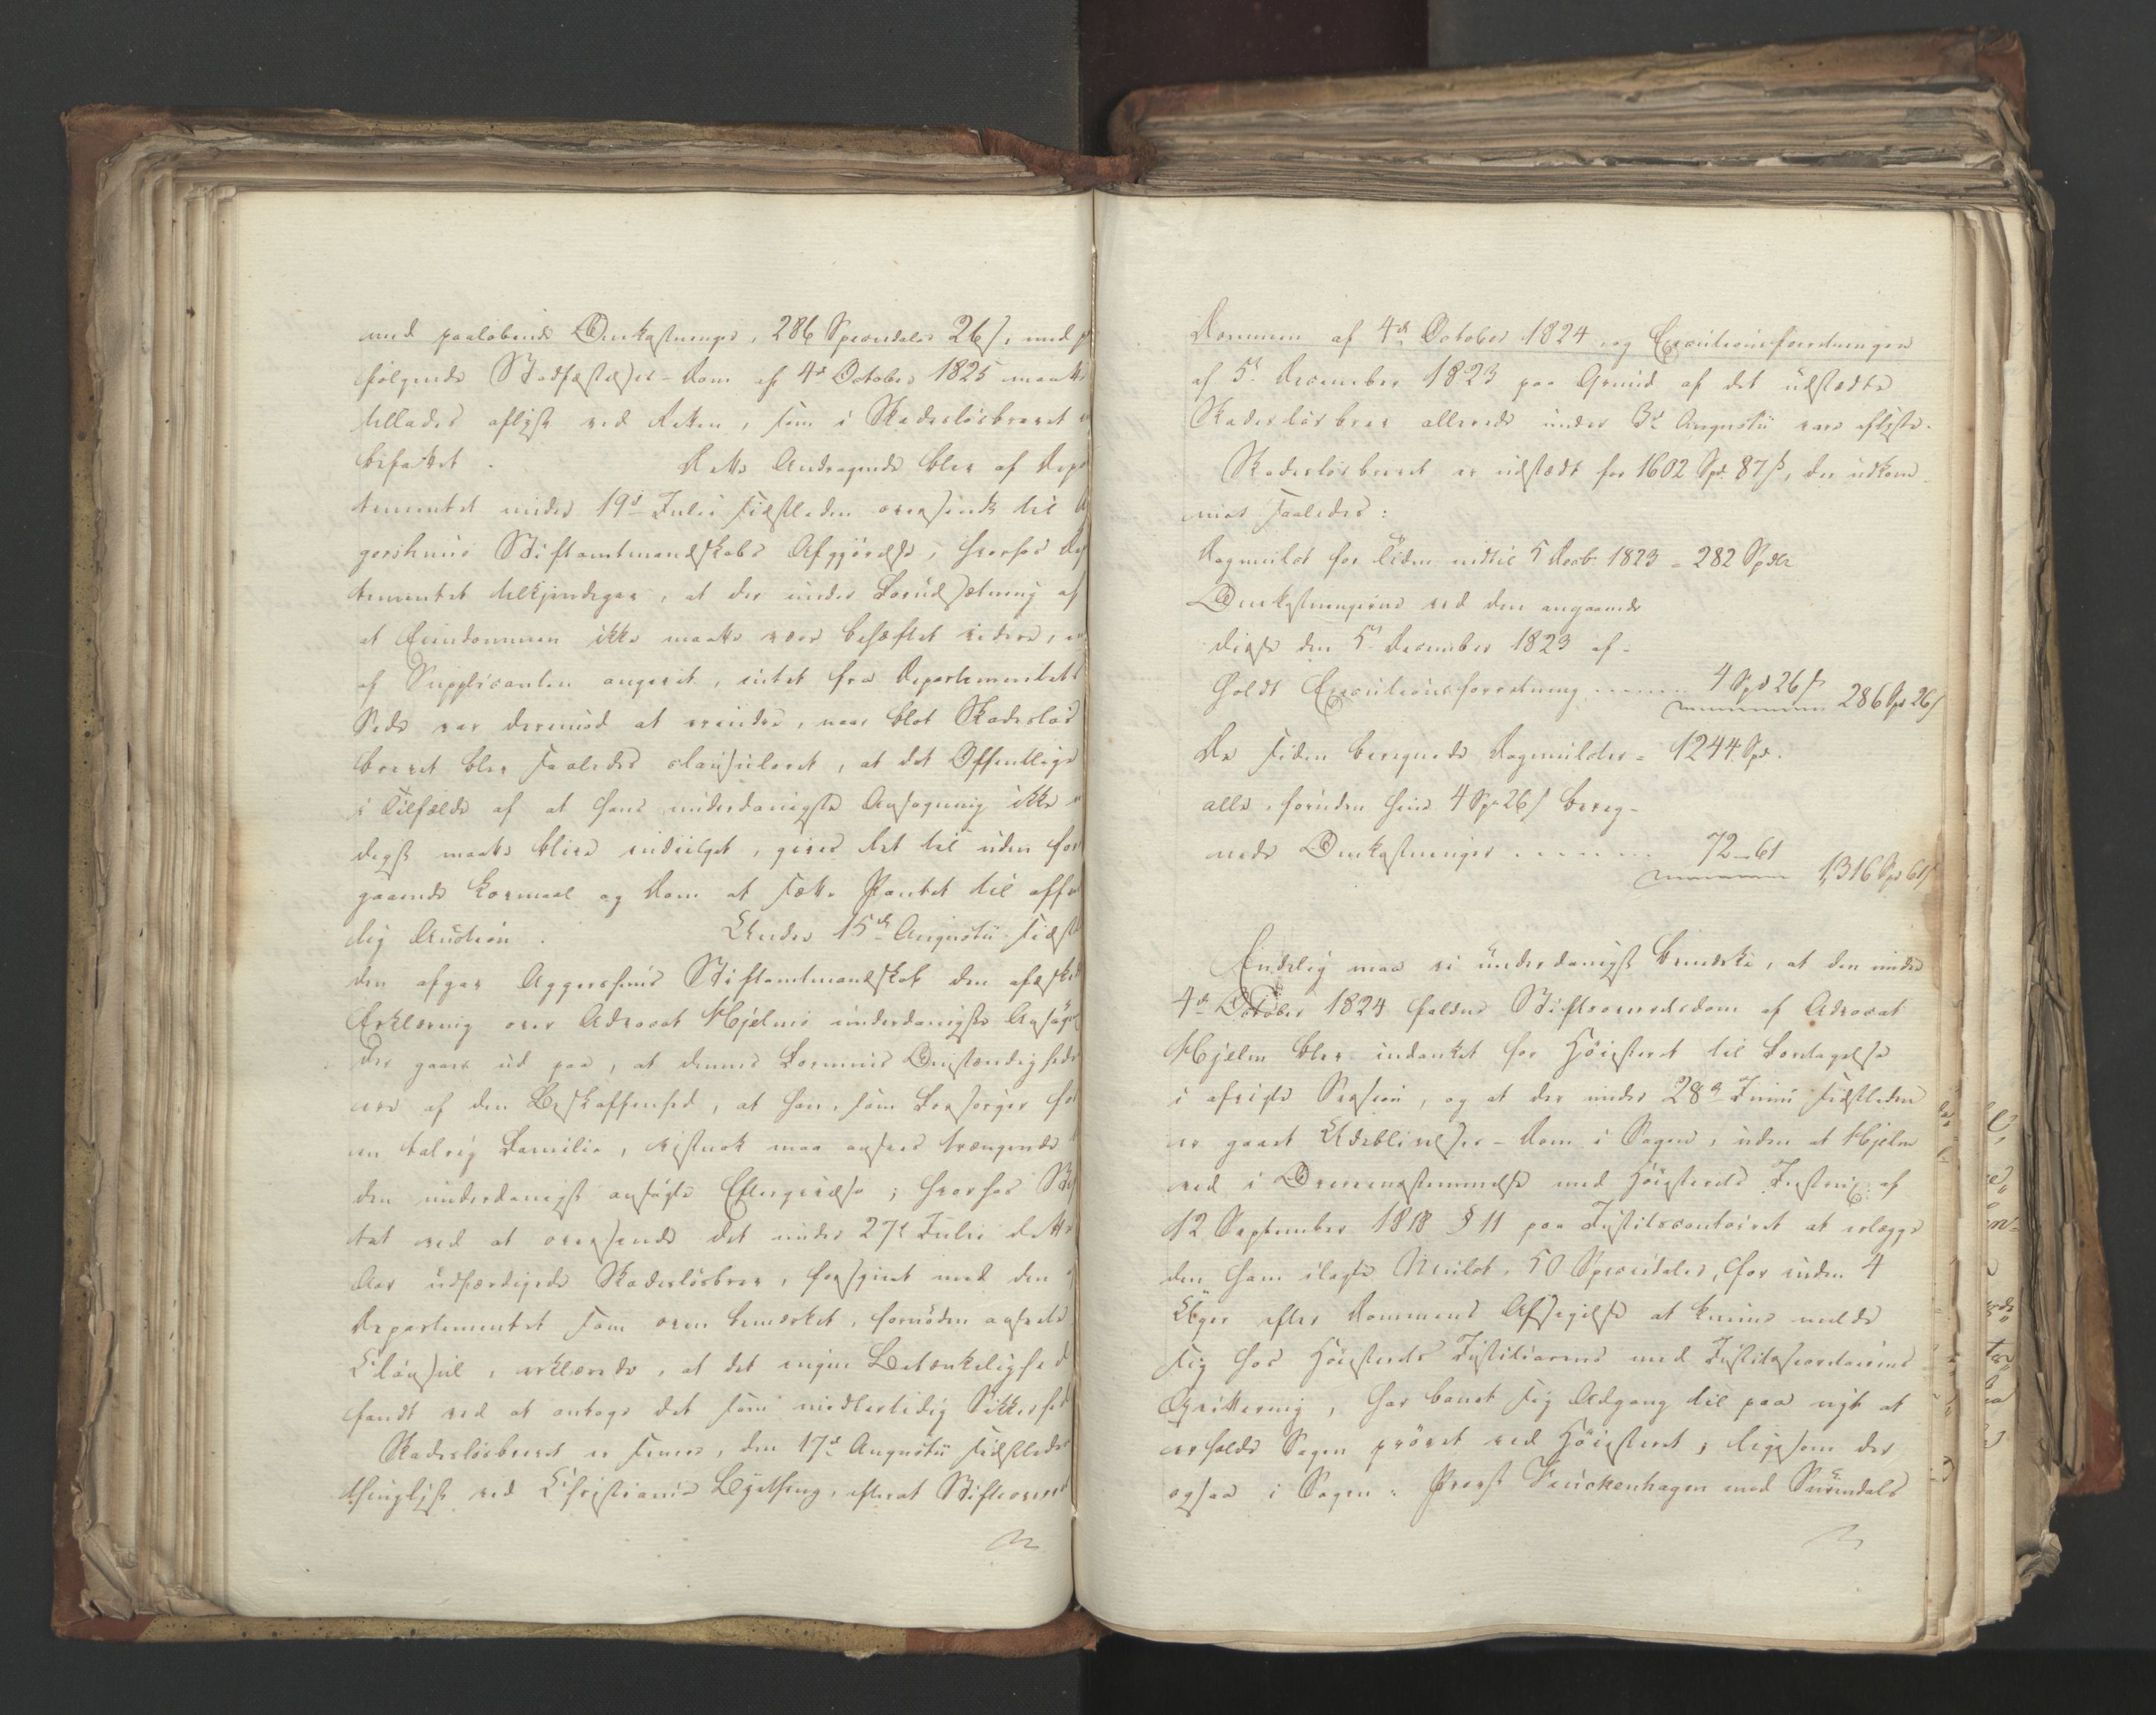 med paaløbende Omkostninger, 286 Speciedaler 26 s, med
følgende Stadfæstelses-Dom af 4de October 1825 maatte
tillades aflyst ved Retten, som i Skadesløsbrevet
bifaldet. Dette Andragende blev af Depar
tementet under 19de Julii sidstleden oversendt til A
gershuus Stiftamtmandskabs Afgjørelse, hvorhos Depar
tementet tilkjendegav, at der under Forudsætning af
at Eiendommen ikke maatte være behæftet videre, end
af Supplicanten angivet, intet fra Departementets
Side var derimod at erindre, naar blot Skadesløs
brevet blev saaledes clausuleret, at det Offentlige
i Tilfælde af at hans underdanigste Ansøgning ikke
digst maatte blive indvilget, gives Ret til uden for
gaaende Lovmaal og Dom at sætte Pantet til offent
lig Auction. Under 15de Augustii sidst
den afgav Aggershuus Stiftamtmandskab den afæskede
Erklæring over Advocat Hjelms underdanigste Ansøgn
der gaaer ud paa, at dennes Formues Omstændigheder
ere af den Beskaffenhed, at han, som Forsørger for
en talrig Familie, vistnok maa ansees trængende
den underdanigst ansøgte Eftergivelse; hvorhos Stif
tet ved at oversende det under 27de Julii dette
Aar udfærdigede Skadesløsbrev, forsynet med den
Departementet som oven bemærket, fornøden ansete
Clausul, erklærede, at det ingen Betænkelighed
fandt ved at antage det som midlertidig Sikkerhed
Skadesløsbrevet er senere, den 17de Augustii sidstleden
thinglyst ved Christiania Bything, efterat Stiftsoverret
Dommen af 4de October 1824 og Executionsforretningen
af 5te December 1823 paa Grund af det udstædte
Skadesløsbrev allerede under 3de Augustii vare aflyste.
Skadesløsbrevet er udstædt for 1602 Spd. 87 s, der udkom
mer saaledes:
Dagmulct for Tiden indtil 5 Decbr. 1823 = 282 Spdlr
Omkostningerne ved den angaaende
disse den 5te December 1823 af-
holdt Executionsforretning . . . . . . 4 Spd 26 s 286 Spd 26 s
De siden beregnede Dagmulcter = 1244 Spd.
alle, foruden hine 4 Spd 26 s bereg-
nede Omkostninger . . . . . . 72 - 61 1,316 Spd 61 s
Endelig maa vi underdanigst bemærke, at den under
4de October 1824 faldne Stiftsoverretsdom af Advocat
Hjelm blev indanket for Høiesteret til Foretagelse
i afvigte Session, og at der under 28de Junii sidstleden
er gaaet Udeblivelses-Dom i Sagen, uden at Hjelm
ved i Overeensstemmelse med Høiesterets Instrux af
12 September 1818 § 11 paa Justitscontoiret at erlægge
den ham ilagte Mulct, 50 Speciedaler, for inden 4
Uger efter Dommens Afsigelse at kunne melde
sig hos Høiesterets Justitiarius med Justitssecretairens
Qvittering, har banet sig Adgang til paa nyt at
erholde Sagen prøvet ved Høiesteret, ligesom der
ogsaa i Sagen: Provst Finckenhagen mod Surendals